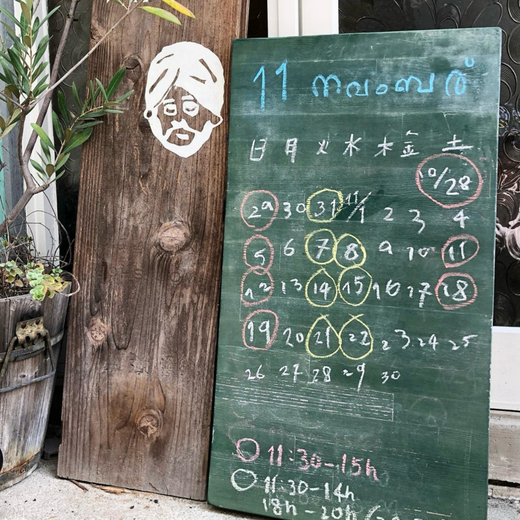 11 നവംബർ
日 月 火 水 木 金 土
10/28
29 30 31 11/1 2 3 4
5 6 7 8 9 10 11
12 13 14 15 16 17 18
19 20 21 22 23 24 25
26 27 28 29 30
11:30-15h
11:30-14h
18h-20h